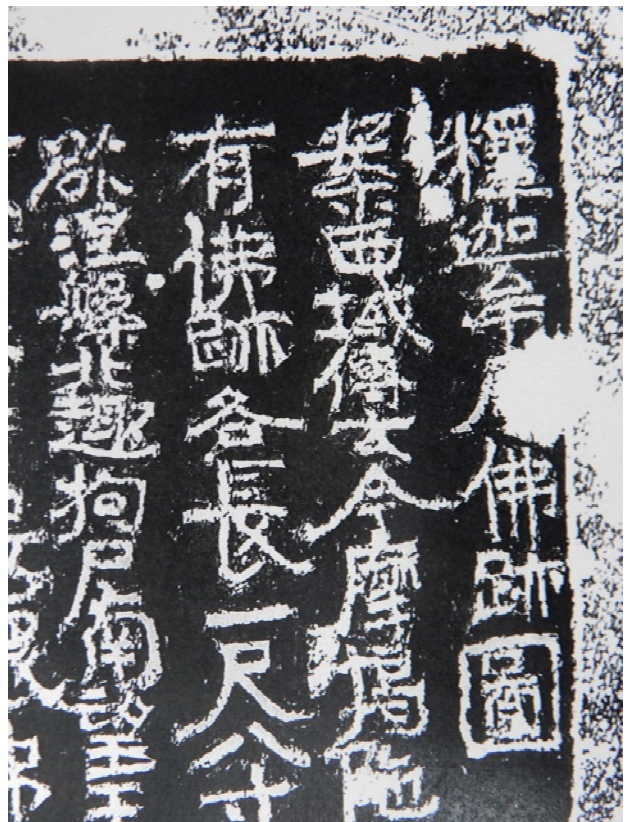 釋迦牟尼佛跡圖
案西域傳云今摩揭陀
有佛跡各長一尺八寸
欲涅槃北趣拘尸南望王